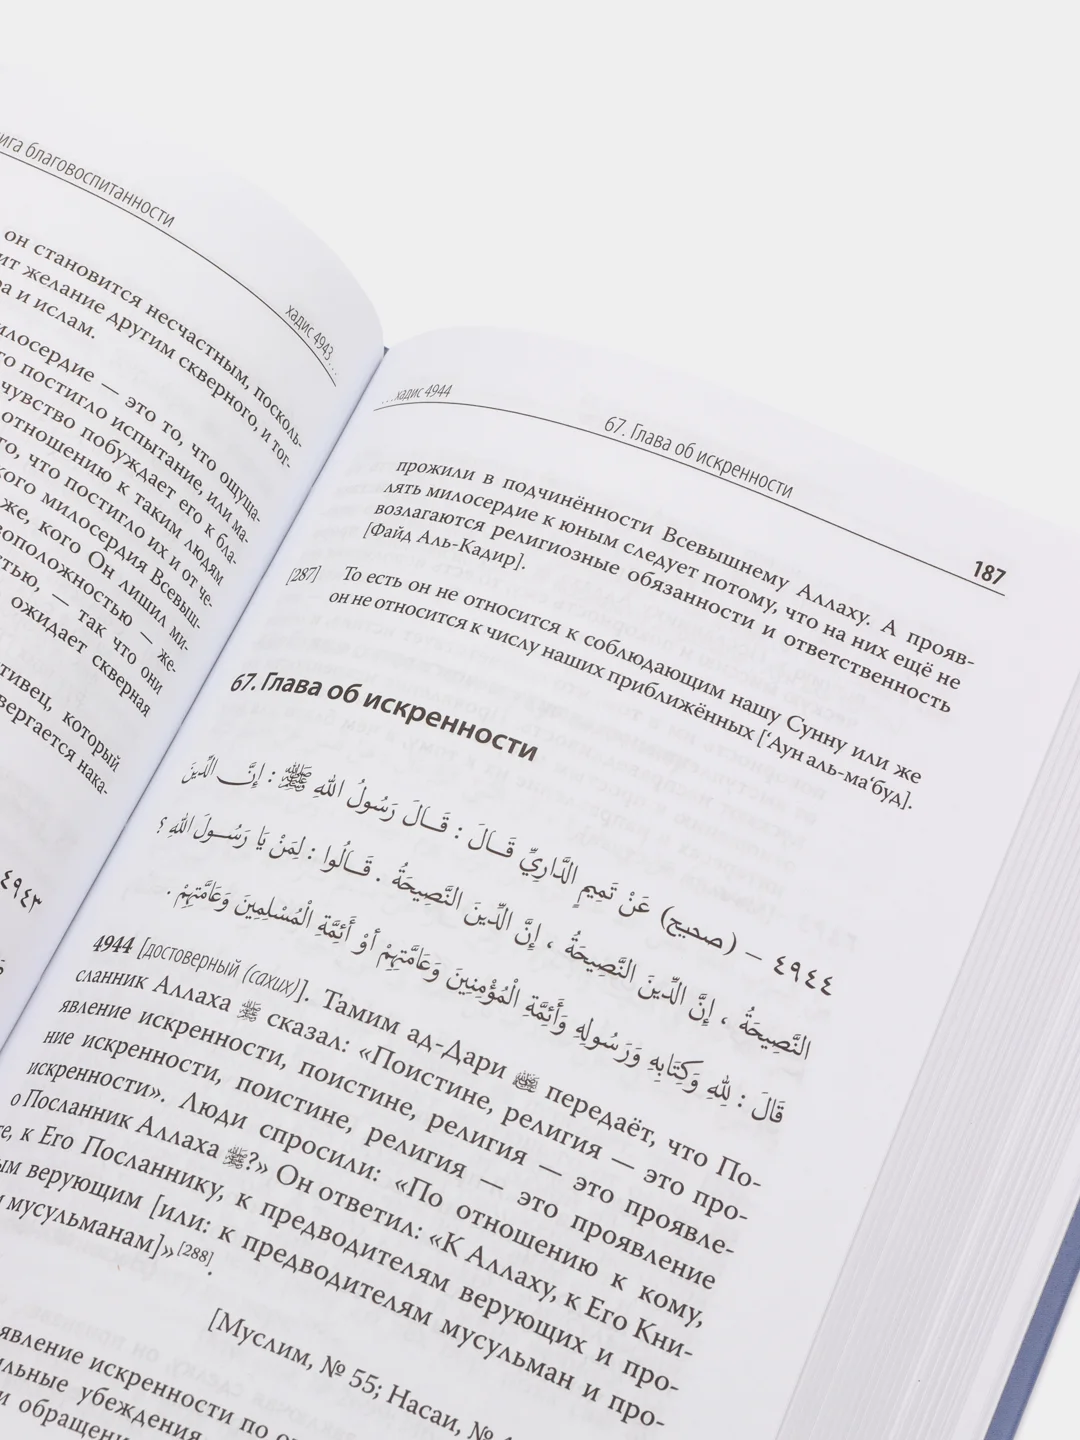 благовоспитанности
хадис 4943...
он становится несчастным, посколь-
желание другим скверного, и тог-
и ислам.
— это то, что ощуща-
постигло испытание, или ма-
чувство побуждает его к бла-
отношению к таким людям
что постигло их и от че-
милосердия Всевыш-
же, кого Он лишил ми-
— же-
— так что они
ожидает скверная
который
нака-
٤٩٤٣
...хадис 4944
67. Глава об искренности
187
прожили в подчинённости Всевышнему Аллаху. А прояв-
лять милосердие к юным следует потому, что на них ещё не
возлагаются религиозные обязанности и ответственность
[Файд Аль-Кадир].
[287] То есть он не относится к соблюдающим нашу Сунну или же
он не относится к числу наших приближённых [‘Аун аль-ма‘буд].
67. Глава об искренности
٤٩٤٤ – (صحيح) عَنْ تَمِيمٍ الدَّارِيِّ قَـالَ : قَـالَ رَسُولُ اللهِ ﷺ : إِنَّ الدِّينَ
النَّصِيحَةُ ، إِنَّ الدِّينَ النَّصِيحَةُ ، إِنَّ الدِّينَ النَّصِيحَةُ . قَـالُوا : لِمَنْ يَا رَسُـولَ اللهِ ؟
قَالَ : لِلَّهِ وَكِتَابِهِ وَرَسُولِهِ وَأَئِمَّةِ الْمُؤْمِنِينَ وَعَامَّتِهِمْ أَوْ أَئِمَّةِ الْمُسْلِمِينَ وَعَامَّتِهِمْ .
4944 [достоверный (сахих)]. Тамим ад-Дари передаёт, что По-
сланник Аллаха ﷺ сказал: «Поистине, религия — это про-
явление искренности, поистине, религия — это проявле-
ние искренности, поистине, религия — это проявление
искренности». Люди спросили: «По отношению к кому,
о Посланник Аллаха ﷺ?» Он ответил: «К Аллаху, к Его Кни-
к Его Посланнику, к предводителям верующих и про-
верующим [или: к предводителям мусульман и про-
мусульманам]»[288].
[Муслим, № 55; Насаи, №
искренности по
убеждения